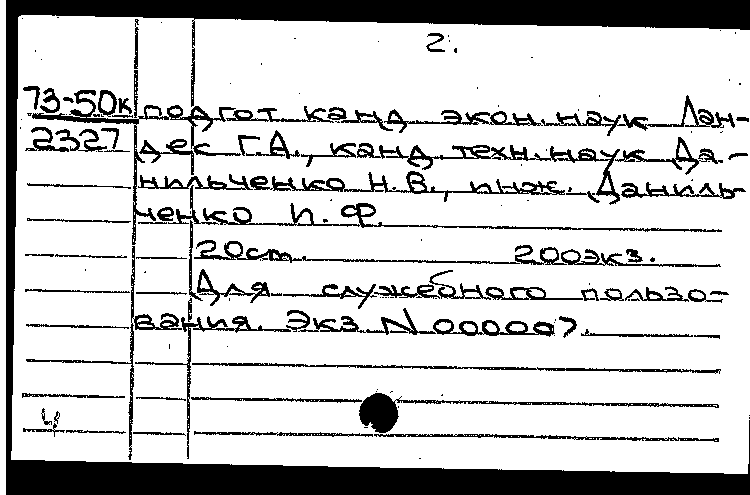 2.
73-50к подгот канд экон. наук Лан-
2327 дес Г.А., канд. техн. наук Да-
нильченко Н.В., инж. Даниль-
ченко И.Ф.
20ст. 200экз.
Для служебного пользо-
вания. Экз N 000007.